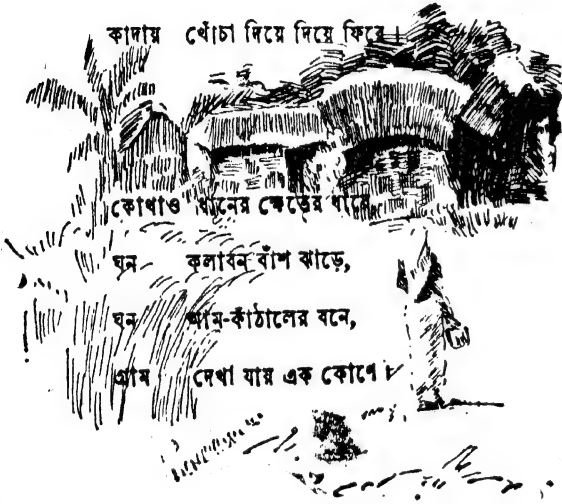 কাদায় খোঁচা দিয়ে দিয়ে ফিরে।
কোথাও ধানের ক্ষেতের ধারে
ঘন কলাবন বাঁশ ঝাড়ে,
ঘন আম-কাঁঠালের বনে,
গ্রাম দেখা যায় এক কোণে।